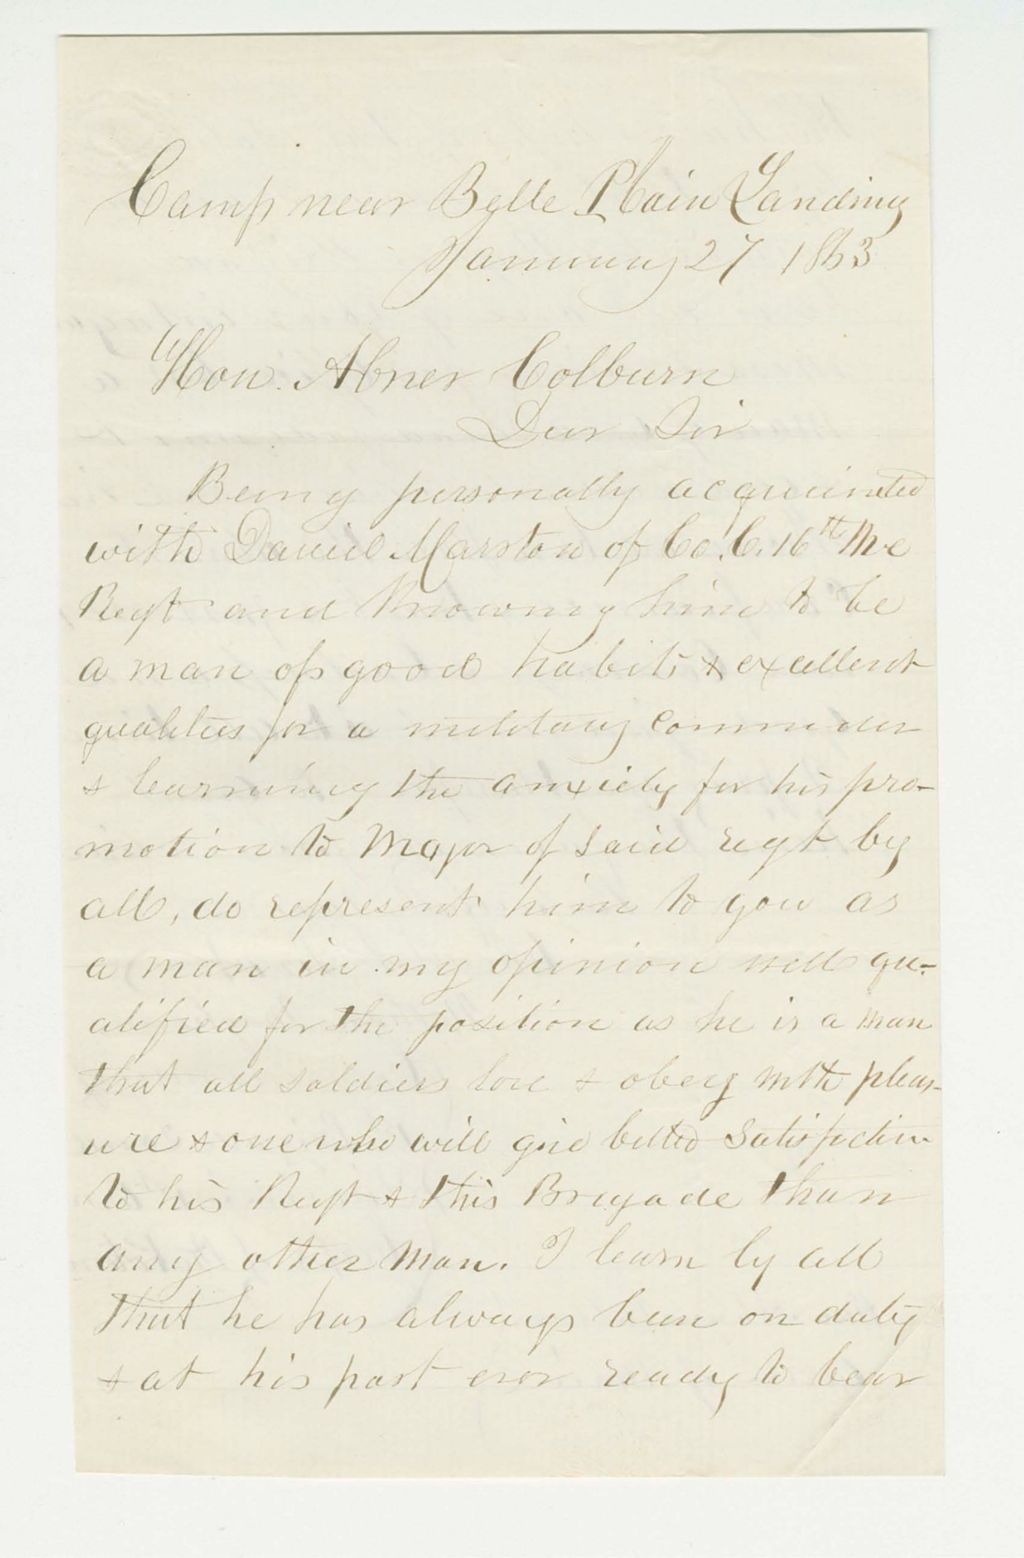 Camp near Belle Plain Landing
January 27 1863
Hon. Abner Colburn
Dear Sir
Being personally acquainted
with Daniel Marston of Co. C. 16th Me
Regt and knowing him to be
a man of good habits & excellent
qualities for a military commander
& learning the anxiety for his pro-
motion to Major of said regt by
all, do represent him to you as
a man in my opinion well qu-
alified for the position as he is a man
that all soldiers love & obey with pleas-
ure & one who will give better satisfaction
to his Regt & this Brigade than
any other man. I learn by all
that he has always been on duty
& at his post ever ready to bear